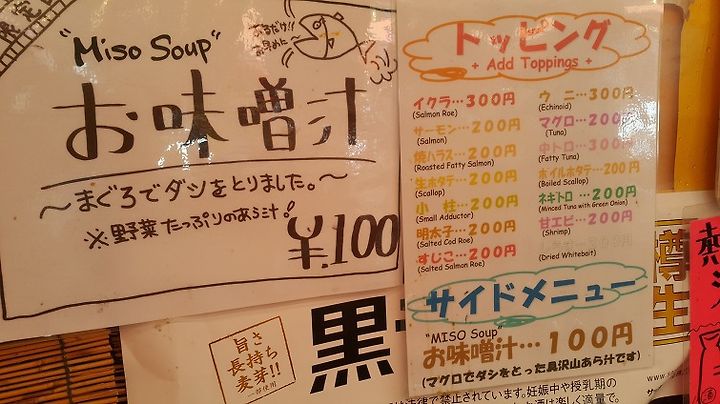 限定
"Miso Soup"
あるだけ!!
お早めに〜
お味噌汁
〜まぐろでダシをとりました。〜
※野菜たっぷりのあら汁!
¥100
トッピング
+ Add Toppings +
イクラ…300円
(Salmon Roe)
サーモン…200円
(Salmon)
焼ハラス…200円
(Roasted Fatty Salmon)
生ホタテ…200円
(Scallop)
小柱…200円
(Small Adductor)
明太子…200円
(Salted Cod Roe)
すじこ…200円
(Salted Salmon Roe)
ウニ…300円
(Echinoid)
マグロ…200円
(Tuna)
中トロ…300円
(Fatty Tuna)
ボイルホタテ…200円
(Boiled Scallop)
ネギトロ…200円
(Minced Tuna with Green Onion)
甘エビ…200円
(Shrimp)
(Dried Whitebait)
サイドメニュー
"MISO Soup"
お味噌汁…100円
(マグロでダシをとった具沢山あら汁です)
旨さ
長持ち
麦芽!!
一部使用
黒
樽
生
熱
で禁止されています。妊娠中や授乳期の
は楽しく適量で。